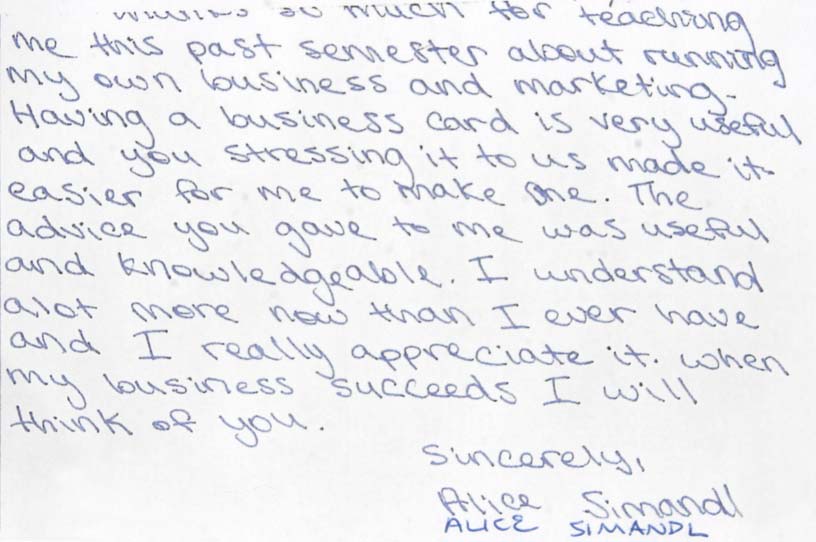 so much for teaching
me this past semester about running
my own business and marketing.
Having a business card is very useful
and you stressing it to us made it
easier for me to make one. The
advice you gave to me was useful
and knowledgeable. I understand
alot more now than I ever have
and I really appreciate it. when
my business succeeds I will
think of you.
Sincerely,
Alice Simandl
ALICE SIMANDL